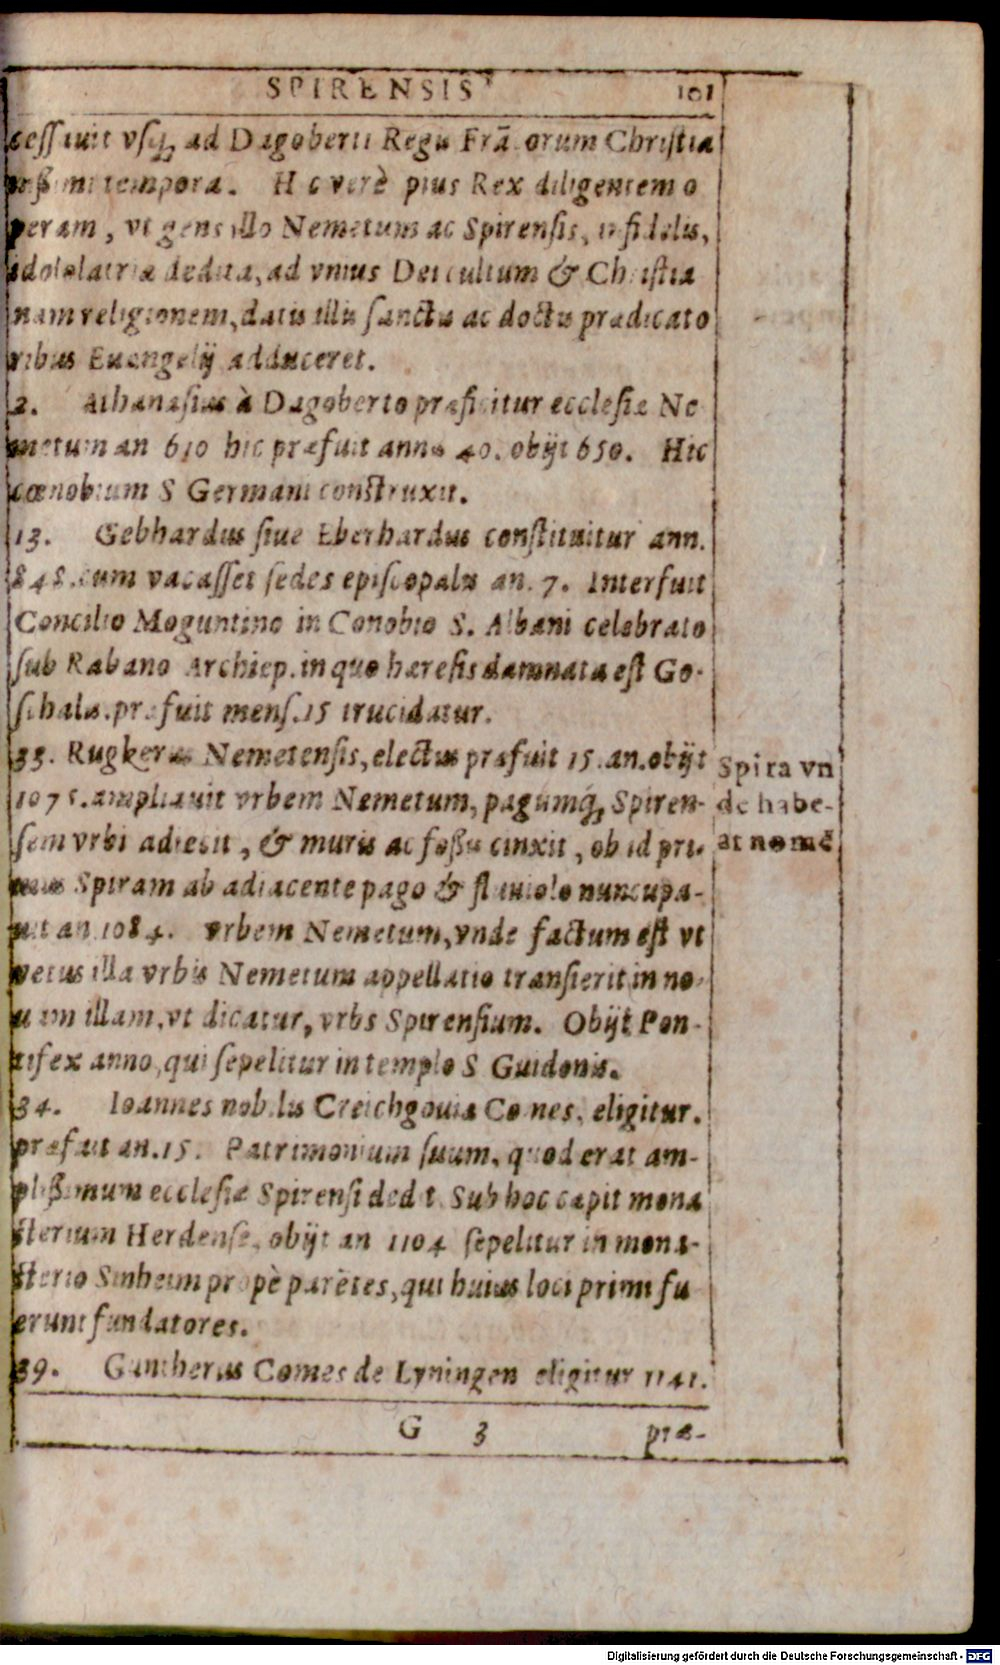 SPIRENSIS 101
cessauit vsq; ad Dagoberti Regis Frācorum Christia
nissimi tempora. Hic verè pius Rex diligentem o
peram, vt gens illo Nemetum ac Spirensis, infidelis,
idololatriæ dedita, ad vnius Dei cultum & Christia
nam religionem, datis illis sanctis ac doctis prædicato
ribus Euangelij adduceret.
2. Athanasius à Dagoberto præficitur ecclesiæ Ne
metum an 610 hic præfuit annis 40. obijt 650. Hic
cœnobium S Germani construxit.
13. Gebhardus siue Eberhardus constituitur ann.
848. cum vacasset sedes episcopalis an. 7. Interfuit
Concilio Moguntino in Conobio S. Albani celebrato
sub Rabano Archiep. in quo hæresis damnata est Go-
schalci. præfuit mens. 15 trucidatur.
33. Rugkerus Nemetensis, electus præfuit 15. an. obijt
1075. ampliauit vrbem Nemetum, pagumq; Spiren-
sem vrbi adiecit, & muris ac fossis cinxit, ob id pri-
mus Spiram ab adiacente pago & fluuiolo nuncupa-
uit an 1084. vrbem Nemetum, vnde factum est vt
vetus illa vrbis Nemetum appellatio transierit in no-
uam illam, vt dicatur, vrbs Spirensium. Obijt Pon-
tifex anno, qui sepelitur in templo S Guidonis.
Spira vn
de habe-
at nomē
34. Ioannes nobilis Creichgouia Comes, eligitur.
præfuit an. 15. Patrimonium suum, quod erat am-
plissimum ecclesiæ Spirensi dedit. Sub hoc capit mona
sterium Herdense, obijt an 1104 sepelitur in mona-
sterio Sinheim propè parētes, qui huius loci primi fu
erunt fundatores.
39. Guntherus Comes de Lyningen eligitur 1141.
G 3 præ-
Digitalisierung gefördert durch die Deutsche Forschungsgemeinschaft - DFG